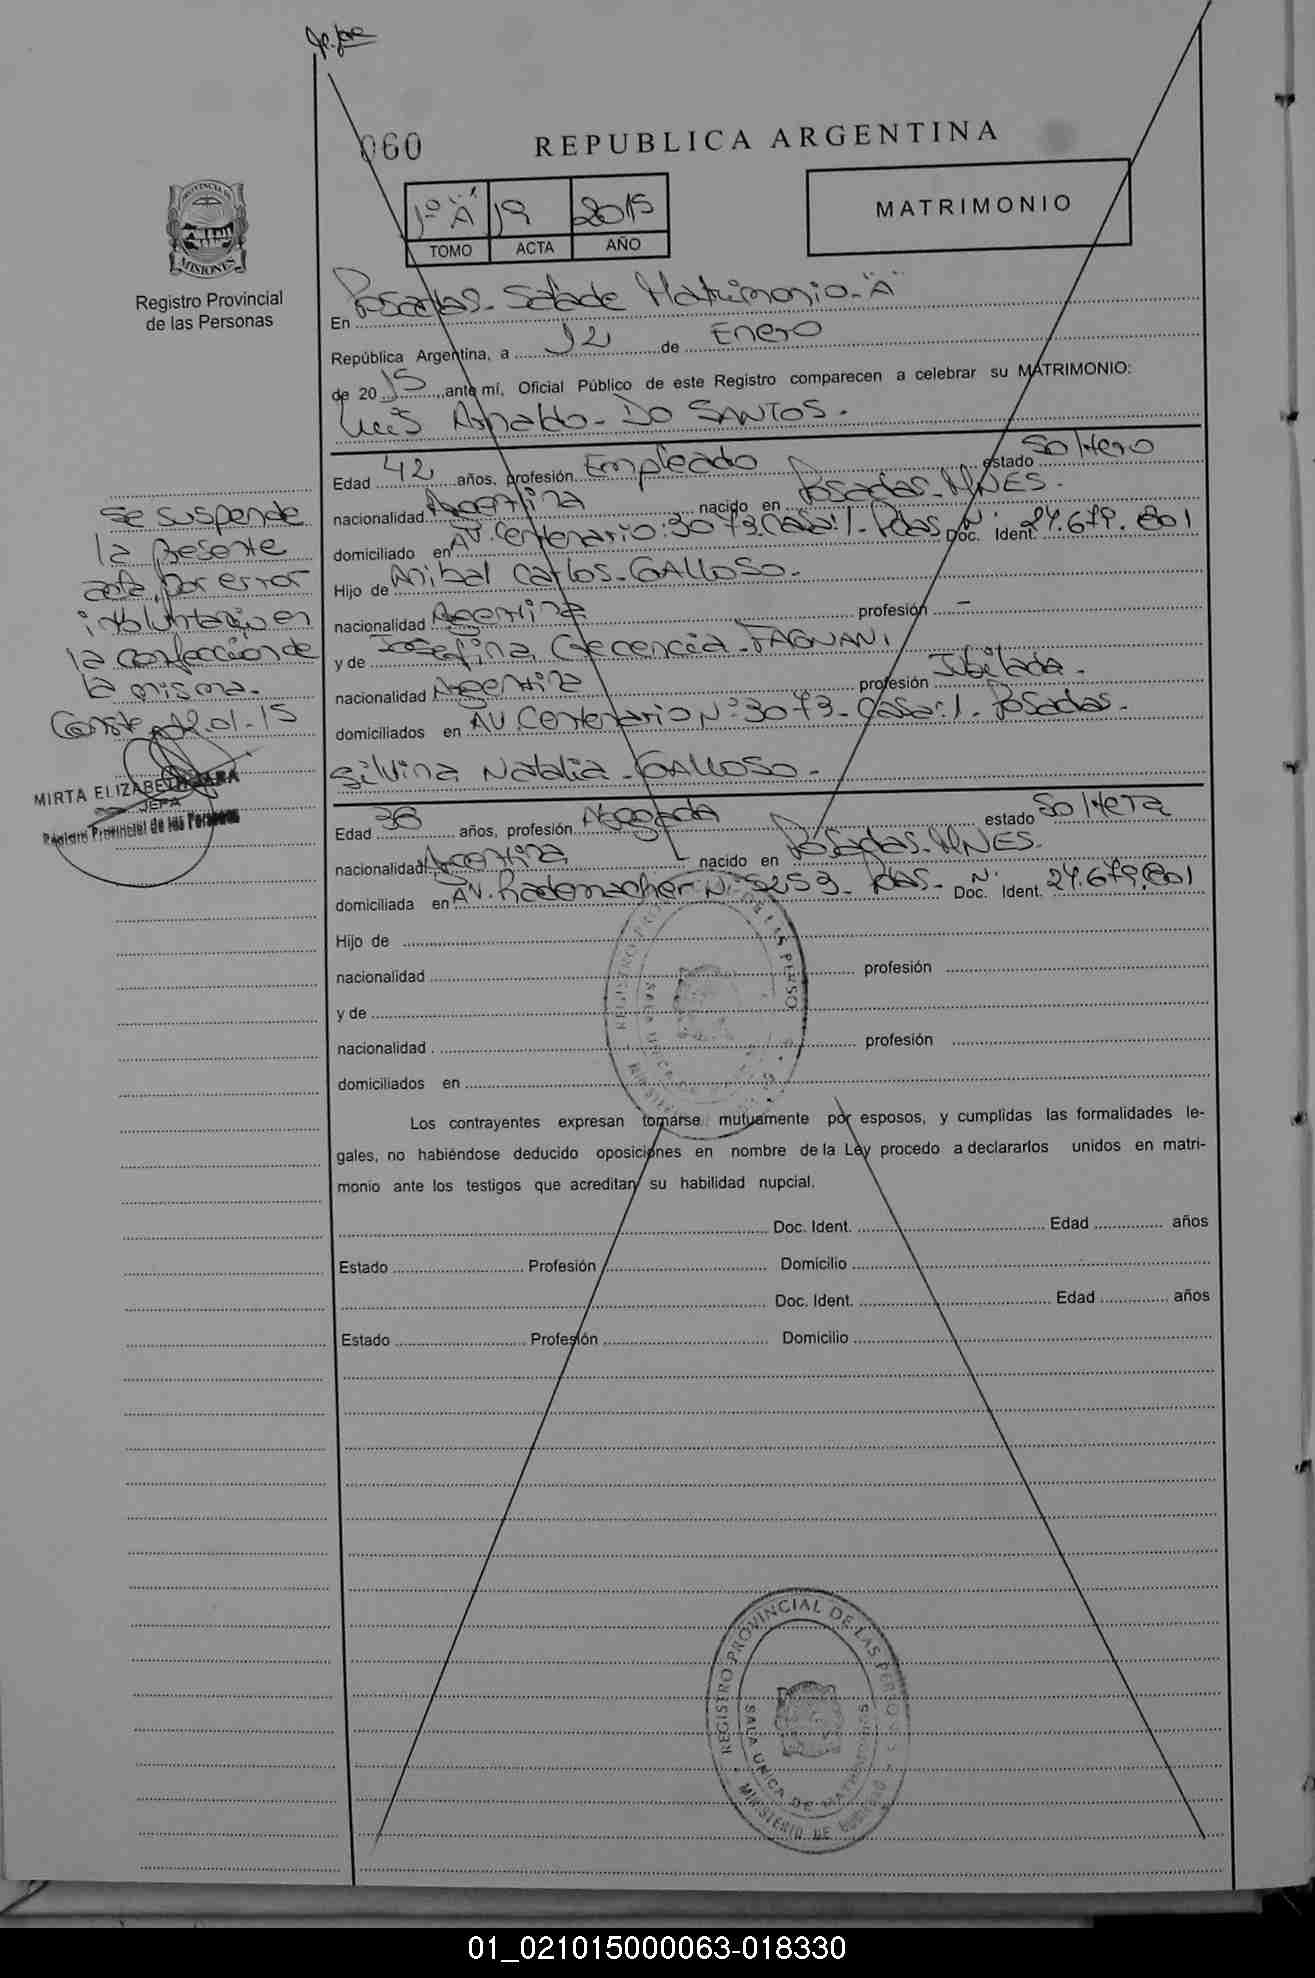 060
REPUBLICA ARGENTINA
1º "A" 19 2015
TOMO ACTA AÑO
MATRIMONIO
PROVINCIA DE
MISIONES
Registro Provincial
de las Personas
En Posadas - Sala de Matrimonio - "A"
República Argentina, a 12 de Enero
de 2015, ante mí, Oficial Público de este Registro comparecen a celebrar su MATRIMONIO:
Luis Arnaldo - DO SANTOS -
Edad 42 años, profesión Empleado estado Soltero
nacionalidad Argentina nacido en Posadas - MNES -
domiciliado en AV. Centenario: 3073. Casa: 1 - Pdas Doc. Ident. Nº 24.679.801
Hijo de Anibal Carlos - GALLOSO -
nacionalidad Argentina profesión -
y de Josefina - FAGNANI
nacionalidad Argentina profesión Jubilada -
domiciliados en AV. Centenario Nº: 3073 - Casa: 1 - Posadas -
Silvina Natalia - GALLOSO -
Edad 36 años, profesión Abogada estado Soltera
nacionalidad Argentina nacido en Posadas - MNES.
domiciliada en AV. Rademacher Nº: 5253 - Pdas - Doc. Ident. Nº 24.679.801
Hijo de
nacionalidad profesión
y de
nacionalidad profesión
domiciliados en
Los contrayentes expresan tomarse mutuamente por esposos, y cumplidas las formalidades le-
gales, no habiéndose deducido oposiciones en nombre de la Ley procedo a declararlos unidos en matri-
monio ante los testigos que acreditan su habilidad nupcial.
Doc. Ident. Edad años
Estado Profesión Domicilio
Doc. Ident. Edad años
Estado Profesión Domicilio
Se suspende
la presente
acta, por error
involuntario en
la confección de
la misma -
Conste 12.01.15
MIRTA ELIZABETH JARA
JEFA
Registro Provincial de las Personas
REGISTRO PROVINCIAL DE LAS PERSONAS
SALA UNICA DE MATRIMONIOS
MINISTERIO DE GOBIERNO
01_021015000063-018330